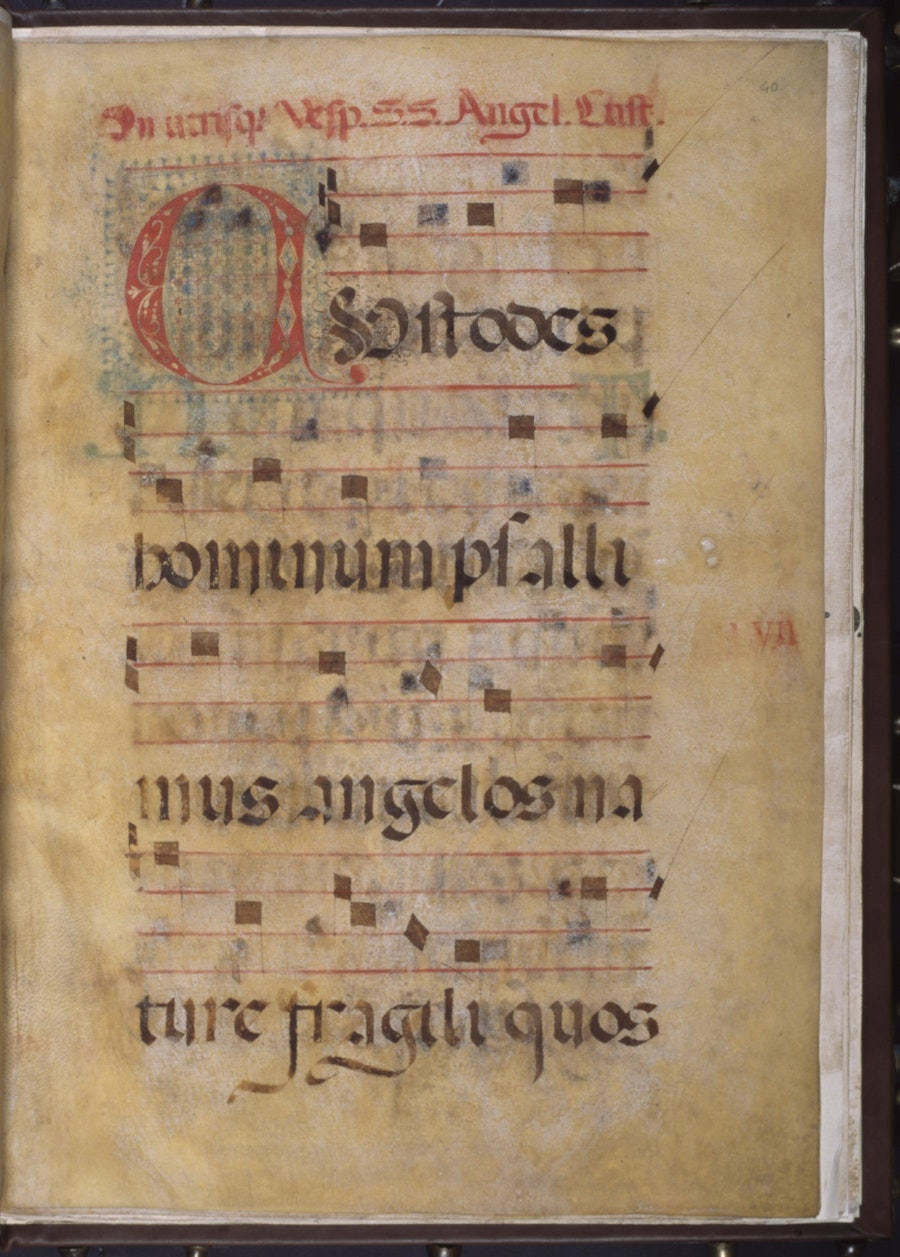 In utrisq; Vesp. SS. Angel. Cust.
CUstodes
hominum psalli
mus angelos na
ture fragili quos
40